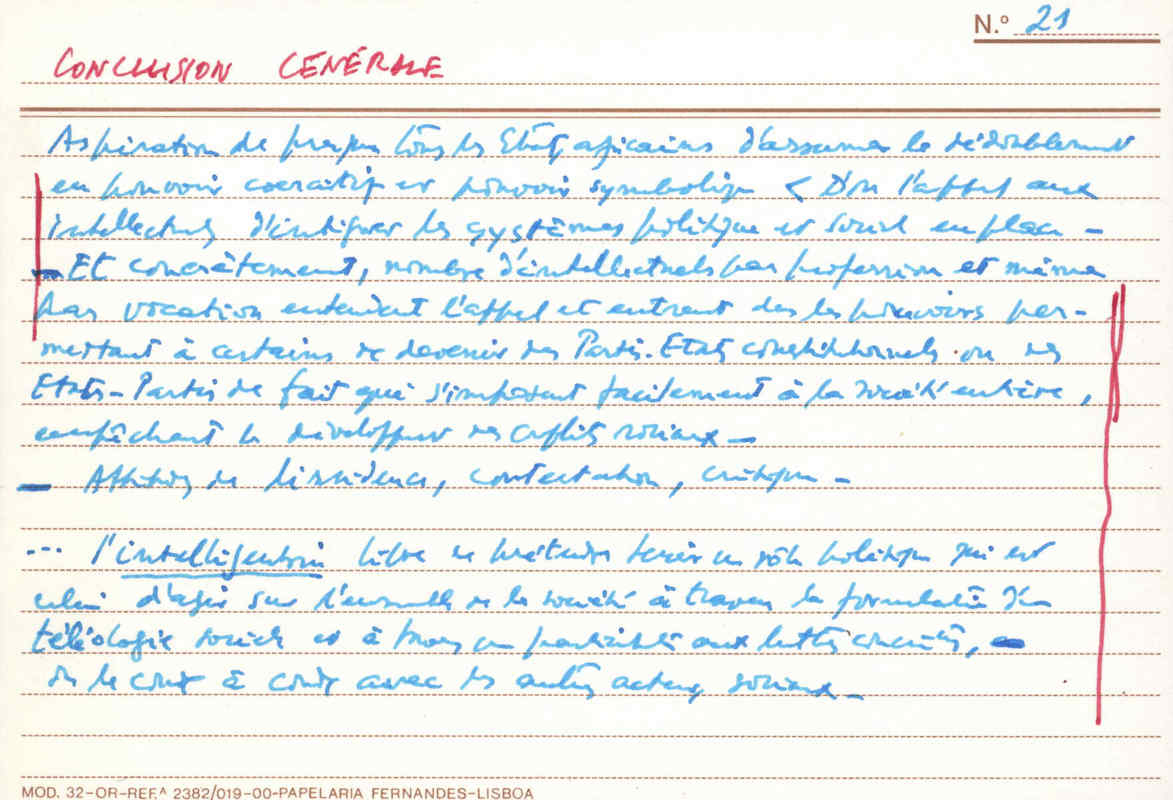 N.º 21
CONCLUSION GÉNÉRALE
Aspiration de presque tous les Etats africains d'assumer le dédoublement
en pouvoir coercitif et pouvoir symbolique < D'où l'appel aux
intellectuels d'intégrer les systèmes politique et social en place –
– Et concrètement, nombre d'intellectuels par profession et même
par vocation entendent l'appel et entrent dans les pouvoirs per-
mettant à certains de devenir des Partis-Etats constitutionnels ou des
Etats-Partis de fait qui s'imposent facilement à la société entière,
empêchant le développer des conflits sociaux –
– Attitudes de dissidence, contestation, critique –
... l'intelligentsia libre de prétendre tenir un rôle politique qui est
celui d'agir sur l'ensemble de la société à travers la formulation d'une
téléologie sociale et à travers participation aux luttes concrètes,
ou le coude à coude avec les autres acteurs sociaux –
MOD. 32-OR-REF.ª 2382/019-00-PAPELARIA FERNANDES-LISBOA